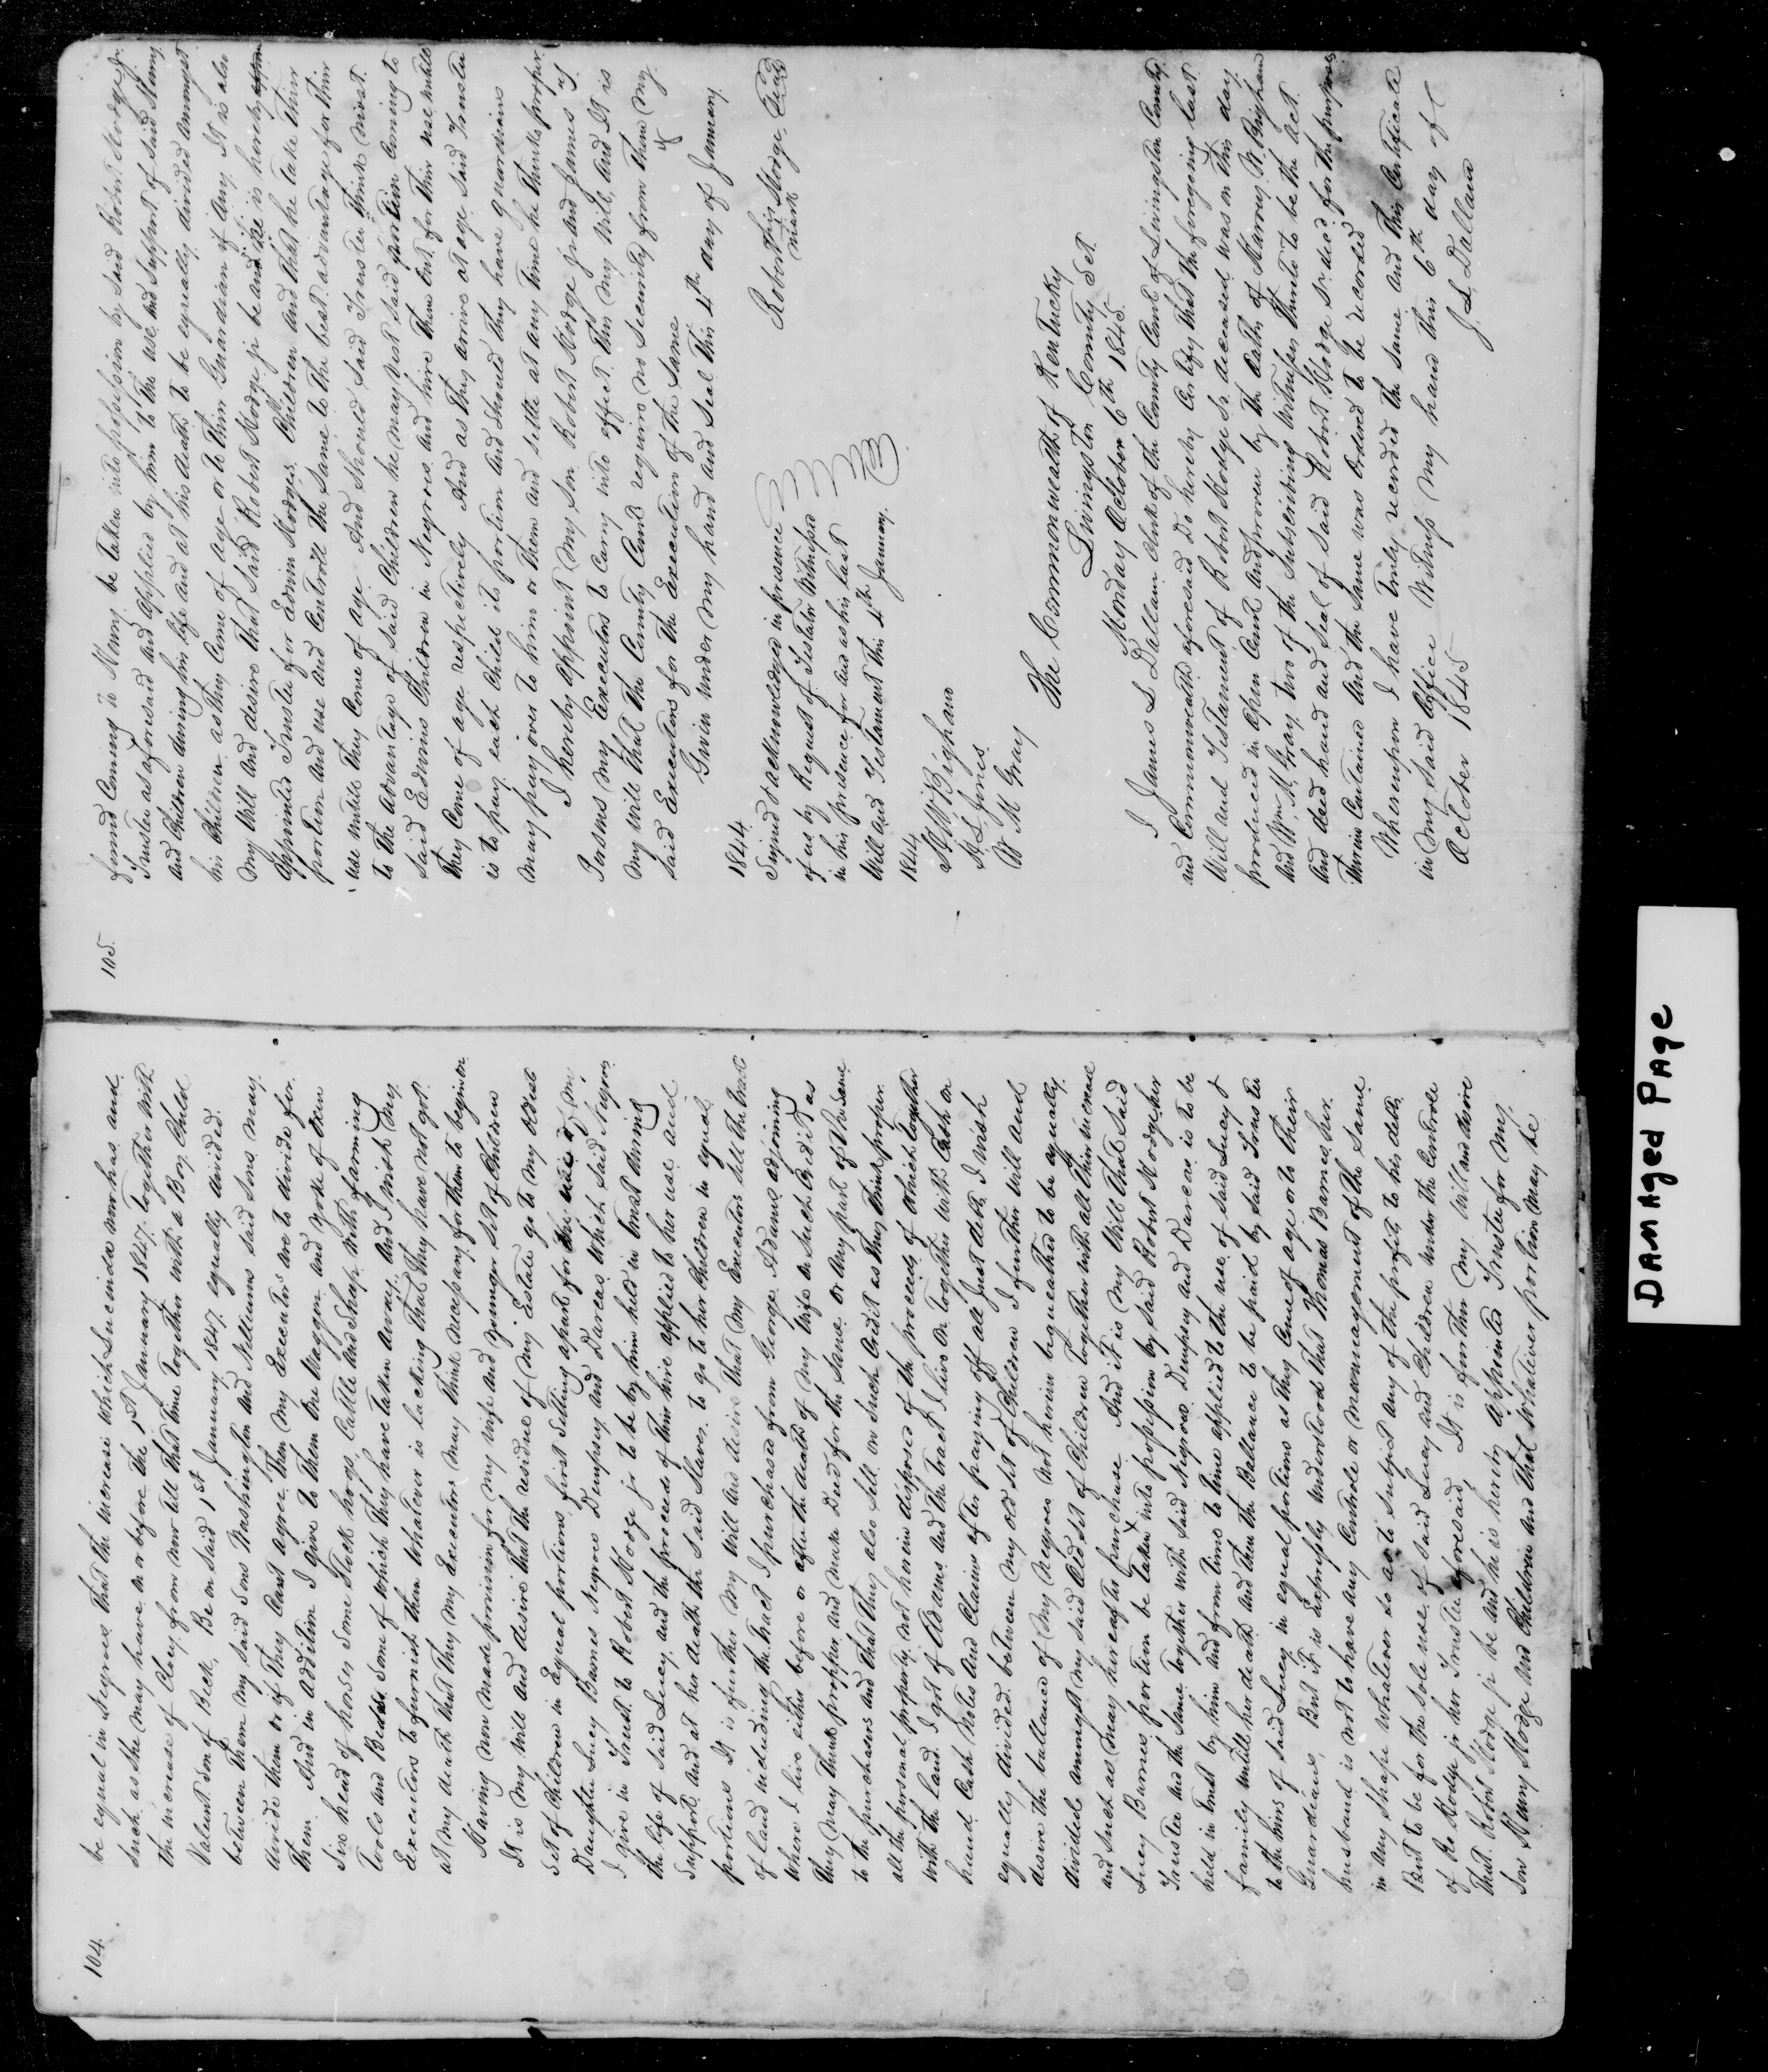 104.
be equal in Negroes that the increase which Lucinda now has and
such as she may have on or before the 1st January 1847. together with
the increase of Cloey from now till that time together with a Boy Child
Valunt son of Beck, Be on Said 1st January 1847 equally divided
between them my said Sons Washington and Williams said sons may
divide them or if They Cant agree Then my Executors are to divide for
Them. And in addition I give to Them One Waggon and yoke of Oxen
Six head of horses Some Stock hogs, Cattle and Sheep with farming
Tools and Beds some of which They have taken away, And I wish my
Executors to furnish them whatever is lacking that they have not got
at my death that They my Executors may think necessary for them to begin on
Having now made provision for my wife and younger set of Children
It is my will and desire that the residue of my Estate go to my oldest
Set of Children in Equal portions first Setting apart for the use of my
Daughter Lucy Barnes Negroes Dempsey and Darcas which said Negroes
I give in Trust to Robert Hodge jr to be by him held in trust during
the life of said Lucy, and the proceeds of their hire applied to her use and
Support and at her death the said Slaves to go to her Children in equal
portions It is further my will and desire that my Executors sell the tract
of land including the tract I purchased from George Adams adjoining
where I live either before or after the death of my wife on such Credit as
They may think propper and make Deed for the same or any part of the same
to the purchasers and that They also sell on such Credit as they think proper
all the personal property not herein disposed of the proceeds of which together
with the land I got of Adams and the tract I live on together with Cash on
hand Cash Notes and Claims after paying off all Just debts I wish
equally divided between my old set of Children I further will and
desire the ballance of my negroes not herein bequeathed to be equally
divided amongst my said Old set of Children together with all their increase
and such as I may hereafter purchase And it is my will that said
Lucy Barnes portion be taken into possession by said Robert Hodge her
Trustee and the same together with said Negroes Dempsey and Darcas is to be
held in trust by him and from time to time applied to the use of said Lucy &
family untill her death and then the Ballance to be paid by said Trustee
to the heirs of said Lucy in equal portions as they Come of age or to their
Guardians, But it is expressly understood that Thomas Barnes her
husband is not to have any Controle or mannagement of the same
in any Shape whatever so as to subject any of the profits to his debts
But to be for the sole use of said Lucy and Children under the Controle
of Ro Hodge jr her Trustee aforesaid It is further my will and desire
that Robert Hodge jr be and he is hereby appointed Trustee for my
Son Henry Hodge and Children and that whatever portion may be
105.
found Coming to Henry be taken into possession by said Robert Hodge jr.
Trustee as aforesaid and applied by him to the use and support of said Henry
and Children during his life and at his death to be equally divided amongst
his Children as they Come of age or to their Guardian if any It is also
my will and desire that said Robert Hodge jr be and he is hereby
appointed Trustee for Edwin Hodges Children and that he take their
portion and use and Controll the same to the best advantage for their
use untill they Come of age And should said Trustee think it most
to the advantage of said Children he may vest said portion Coming to
said Edwins Children in Negroes and hire them out for their use untill
they Come of age respectively And as they arrive at age said Trustee
is to pay each Child its portion and should they have guardians
may pay over to him or them and settle at any time he thinks proper.
I hereby appoint my son Robert Hodge jr and James
Persons my Executors to Carry into effect this my Will, and It is
my will that the County Court require no security from them my
said Executors for the execution of the same
Given under my hand and seal this 4th day of January
1844.
Robert his mark Hodge Seal
Signed & acknowledged in presence
of us by Request of Testator Witnessed
in his presence for and as his last
Will and Testament this 4th January.
1844
H W Bigham
H L Jones
W M Gray
The Commonwealth of Kentucky
Livingston County Set
Monday October 6th 1845
I James L Dallam Clerk of the County Court of Livingston County
and Commonwealth aforesaid Do hereby Certify that the foregoing last
Will and Testament of Robert Hodge Sr deceased was on this day
produced in open Court and proven by the Oaths of Harvey W. Bigham
And Wm M. Gray two of the subscribing witnesses thereto to be the act
And deed hand and seal of said Robert Hodge Sr decd for the purposes
therein Contained And the same was ordered to be recorded
Whereupon I have truly recorded the same and this Certificate
in my said Office Witness my hand this 6th day of
October 1845
J. L. Dallam
DAMAGED PAGE